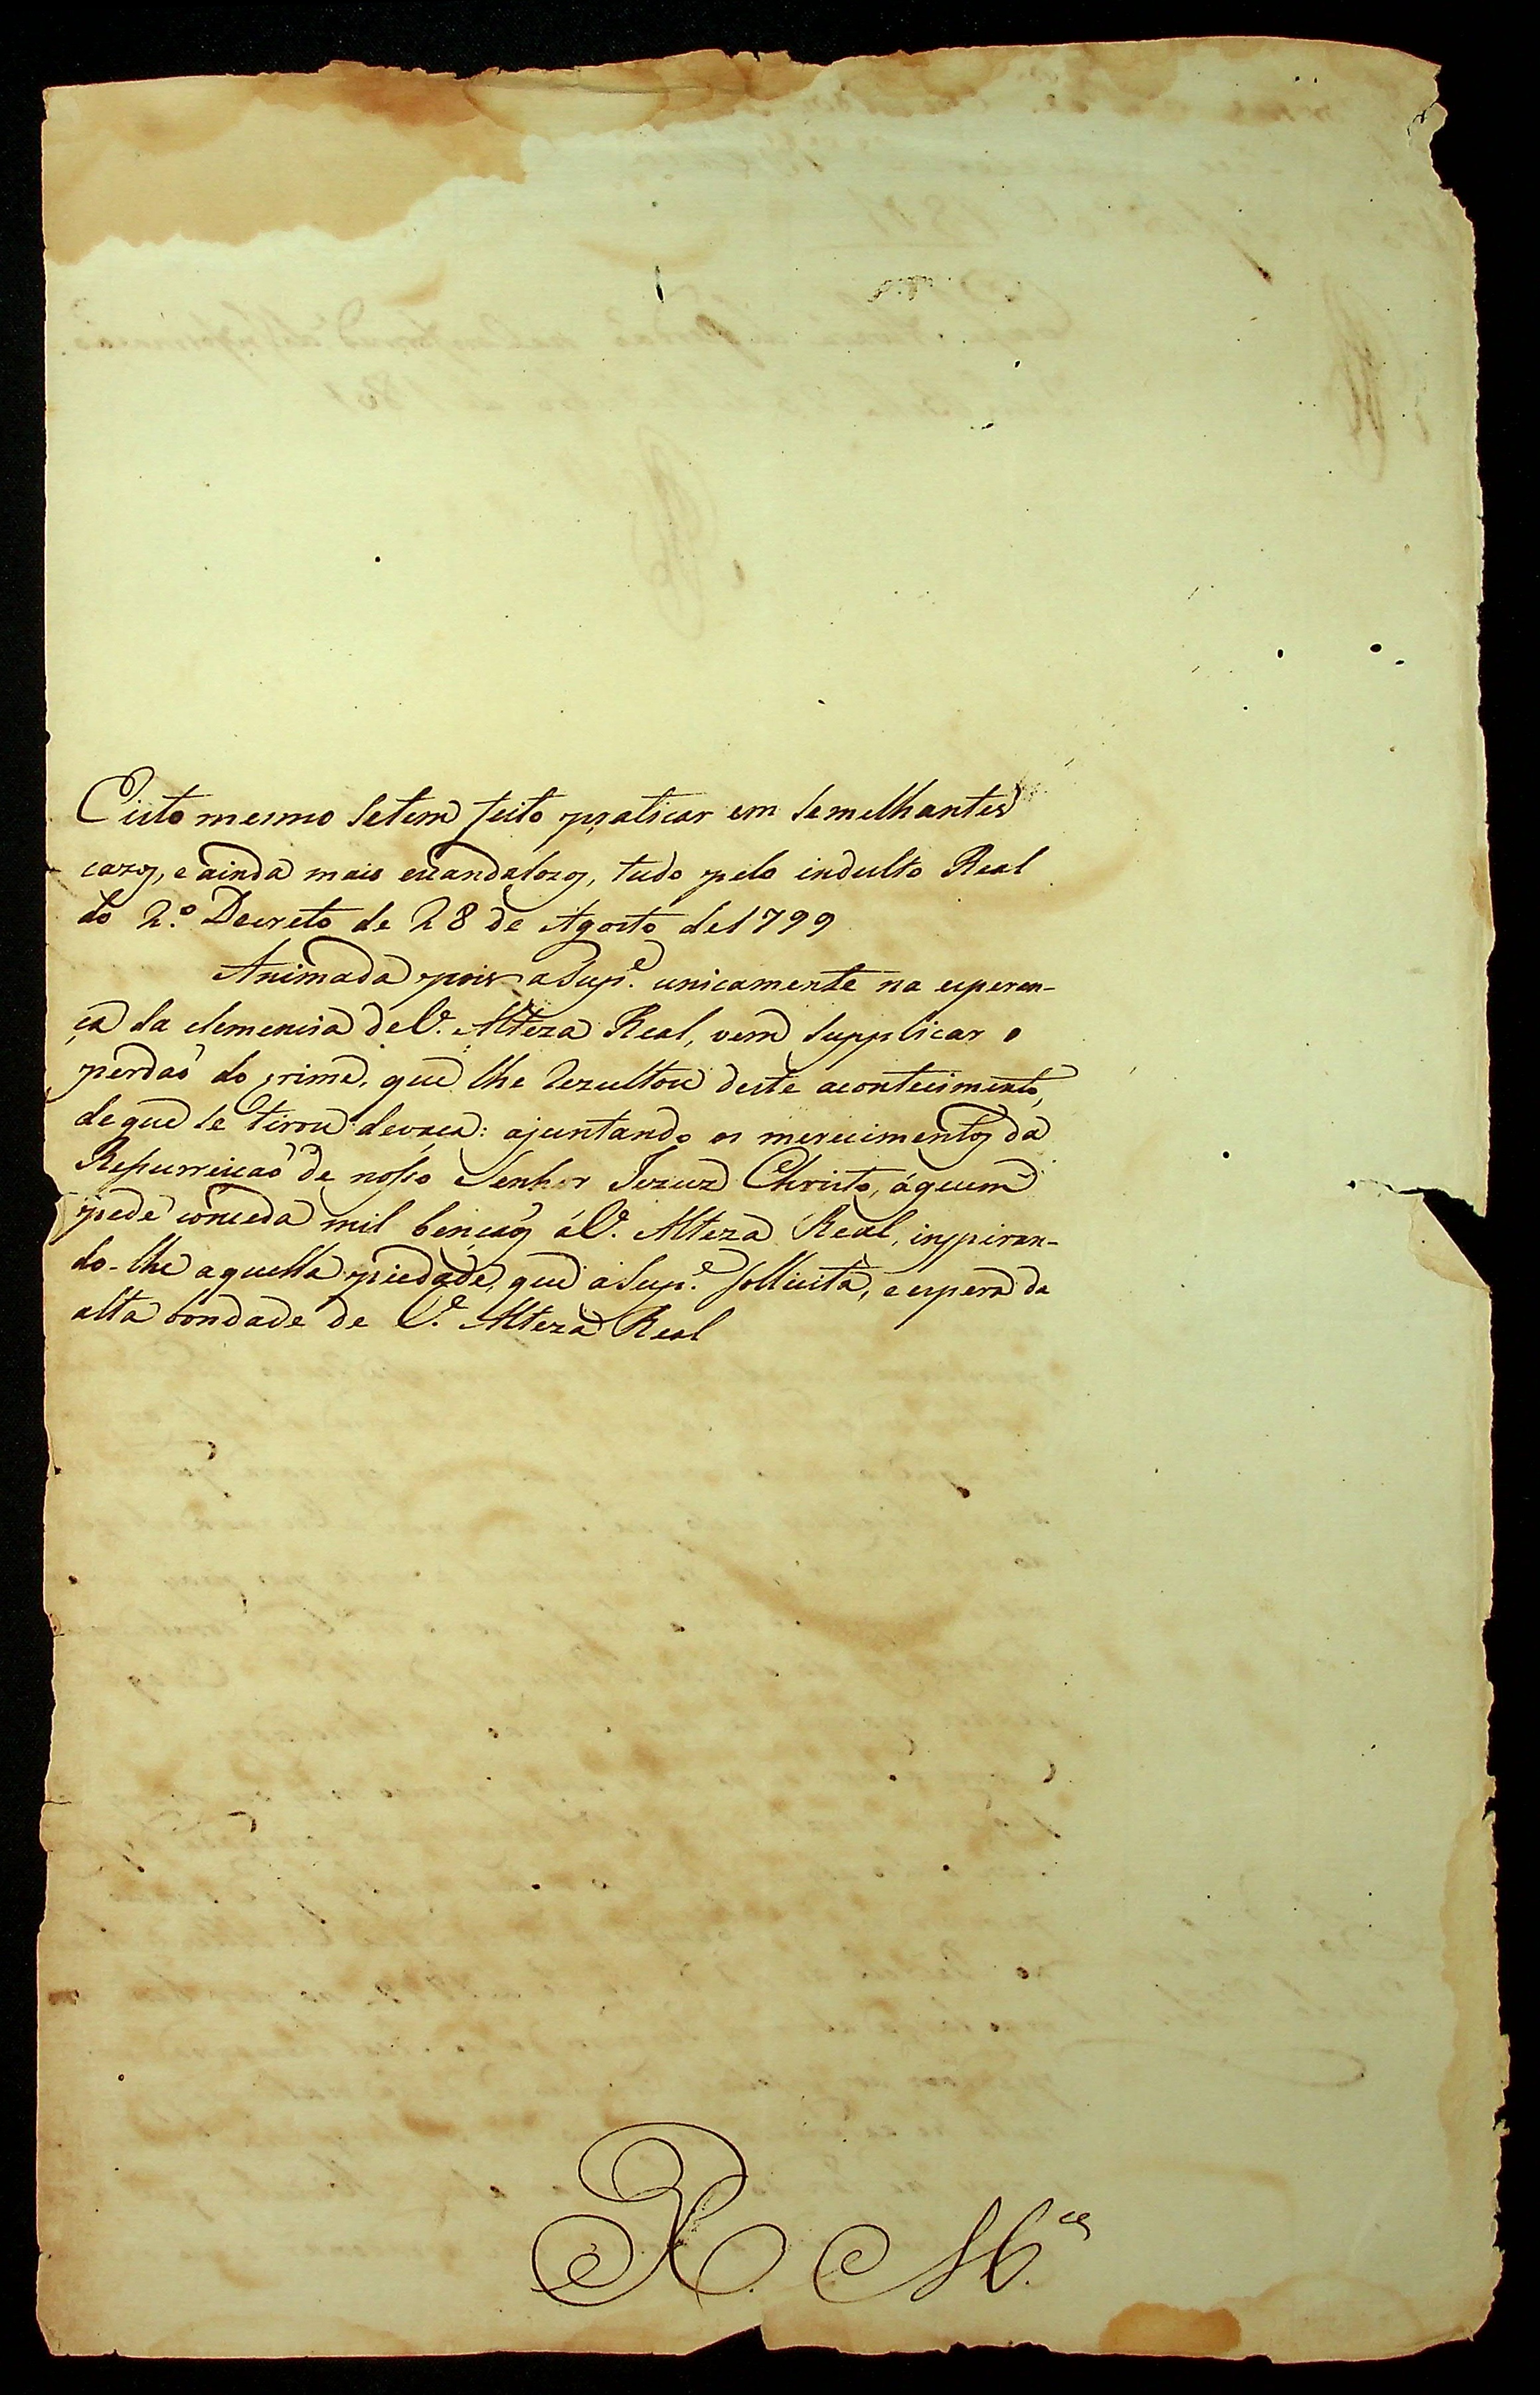 E isto mesmo se tem feito praticar em semelhantes
cazos, e ainda mais escandalozos, tudo pelo indulto Real
do 2.º Decreto de 28 de Agosto de 1799
Animada pois a Sup.e unicamente na esperan-
ça da clemencia de V. Alteza Real, vem supplicar o
perdaõ do crime, que lhe rezultou deste acontecimento,
de que se tirou devaça: ajuntando os merecimentos da
Ressurreicaõ de nosso Senhor Jezuz Christo, áquem
pede conceda mil bençaõs á V. Alteza Real, inspiran-
do-lhe aquella piedade, que a Sup.e sollicita, e espera da
alta bondade de V. Alteza Real
R. M.ce